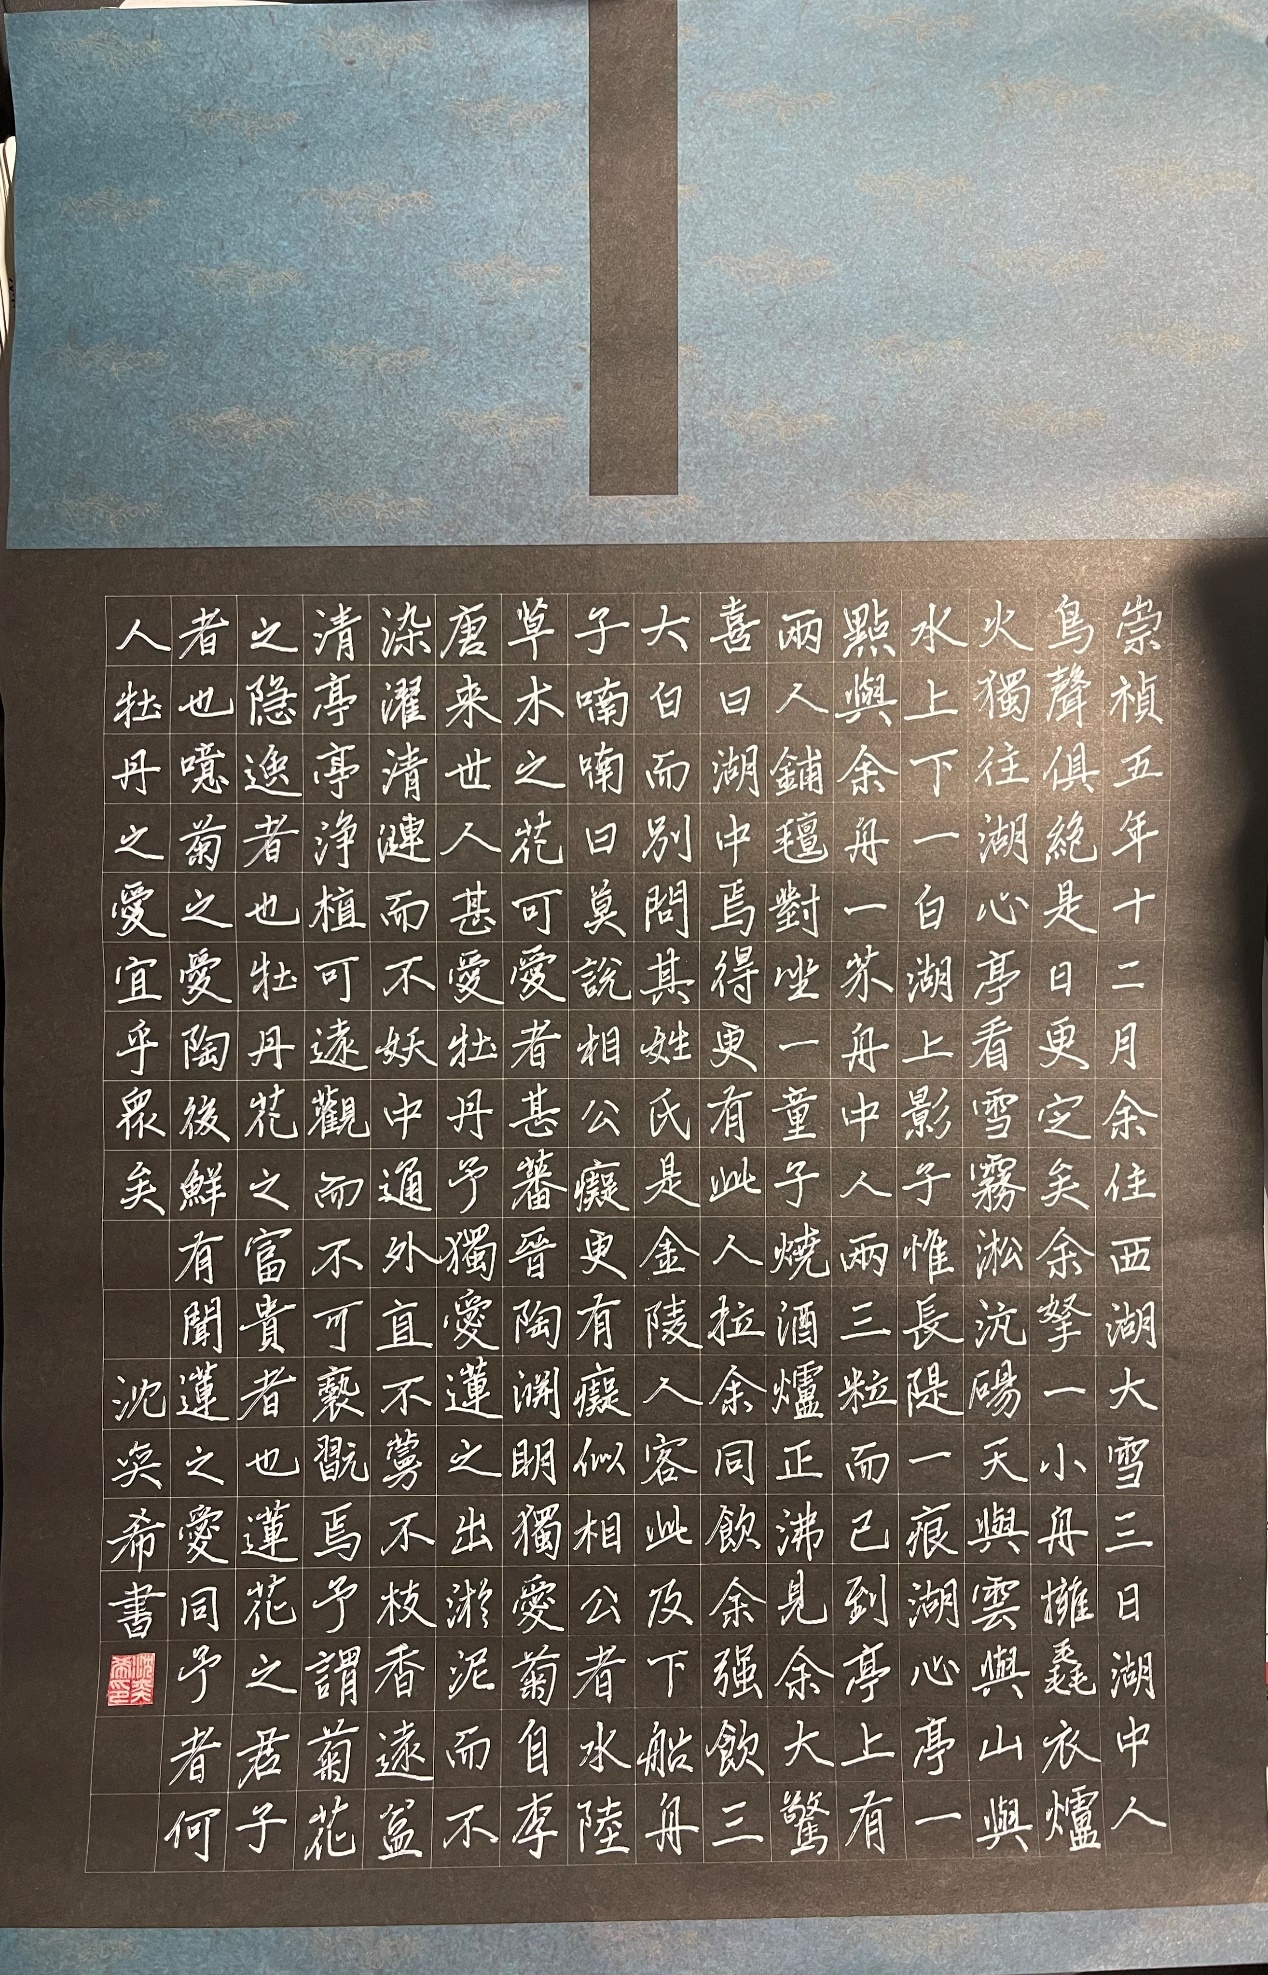 崇禎五年十二月余住西湖大雪三日湖中人
鳥聲俱絕是日更定矣余拏一小舟擁毳衣爐
火獨往湖心亭看雪霧淞沆碭天與雲與山與
水上下一白湖上影子惟長隄一痕湖心亭一
點與余舟一芥舟中人兩三粒而已到亭上有
兩人鋪氊對坐一童子燒酒爐正沸見余大驚
喜曰湖中焉得更有此人拉余同飲余强飲三
大白而別問其姓氏是金陵人客此及下船舟
子喃喃曰莫說相公癡更有癡似相公者水陸
草木之花可愛者甚蕃晉陶淵明獨愛菊自李
唐来世人甚愛牡丹予獨愛蓮之出淤泥而不
染濯清漣而不妖中通外直不蔓不枝香遠益
清亭亭浄植可遠觀而不可褻翫焉予謂菊花
之隐逸者也牡丹花之富貴者也蓮花之君子
者也噫菊之愛陶後鮮有聞蓮之愛同予者何
人牡丹之愛宜乎眾矣
沈奕希書